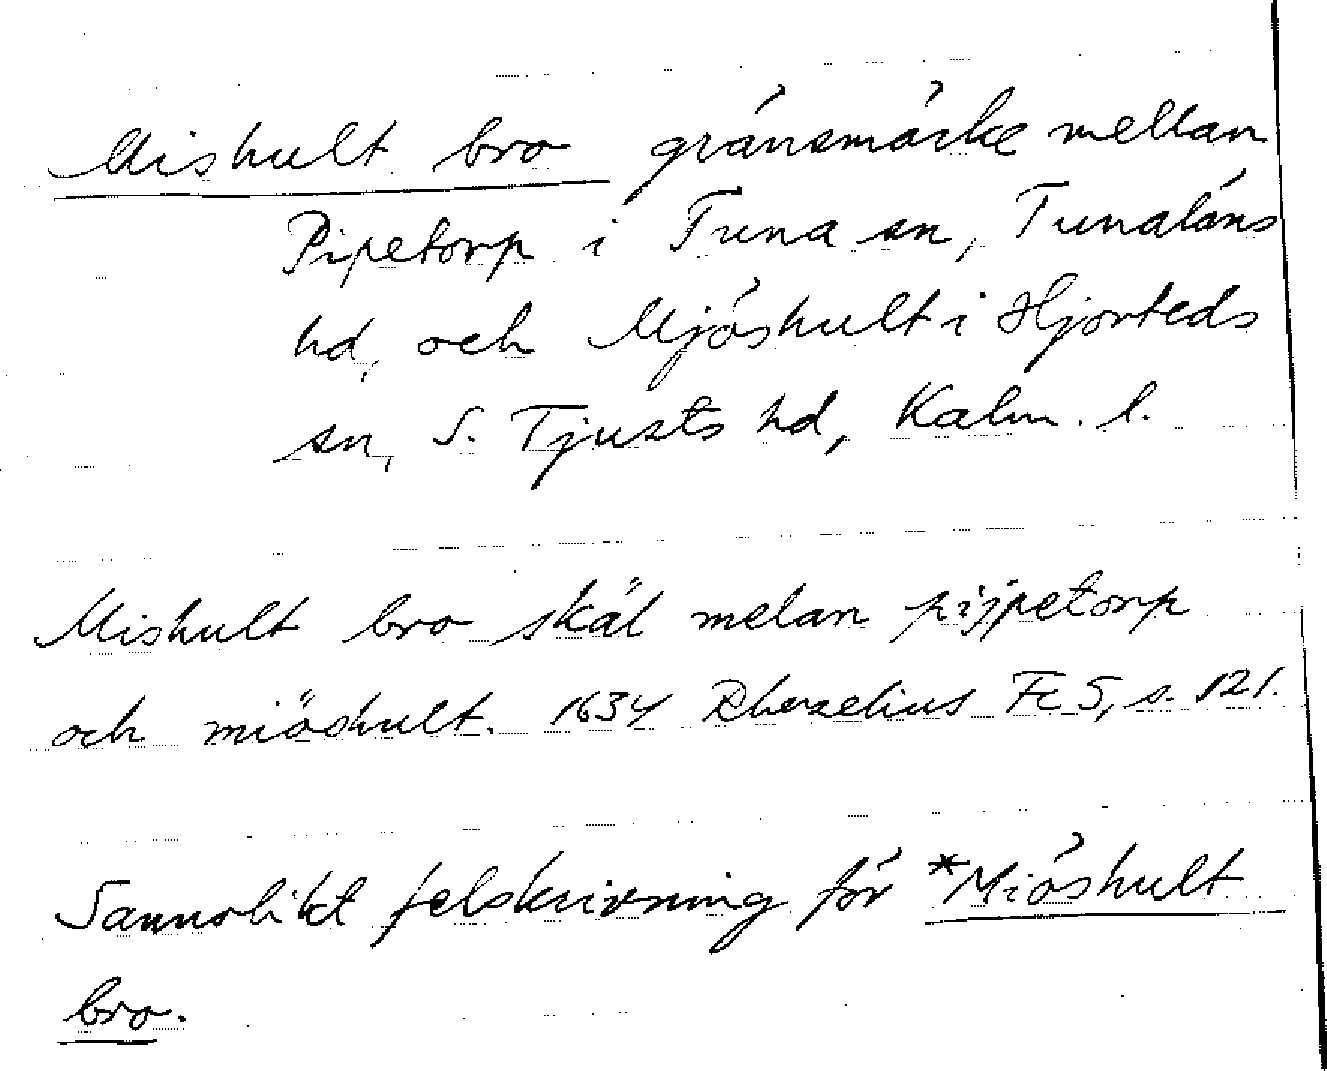 Mishult bro gränsmärke mellan
Pipetorp i Tuna sn, Tunaläns
hd, och Mjöshult i Hjorteds
sn, S. Tjusts hd, Kalm. l.
Mishult bro skäl melan pijpetorp
och miöshult. 1634 Rhezelius Fc 5, s. 121.
Sannolikt felskrivning för *Miöshult
bro.